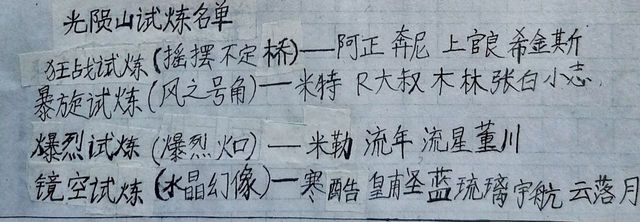 光陨山试炼名单
狂战试炼(摇摆不定桥)——阿正 奔尼 上官良 希金斯
暴旋试炼(风之号角)—米特 R大叔 木林 张白 小志.
爆烈试炼(爆烈火口)——米勒 流年 流星 董川
镜空试炼(水晶幻像)—寒酷 皇甫圣 蓝琉璃 宇航 云落月